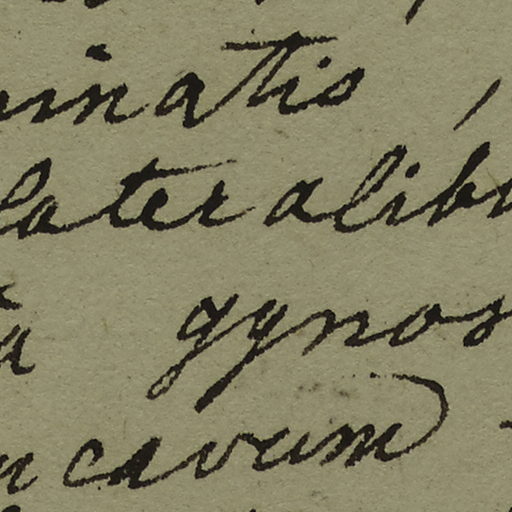 inatis,
lateralibu
a gynos
cavum